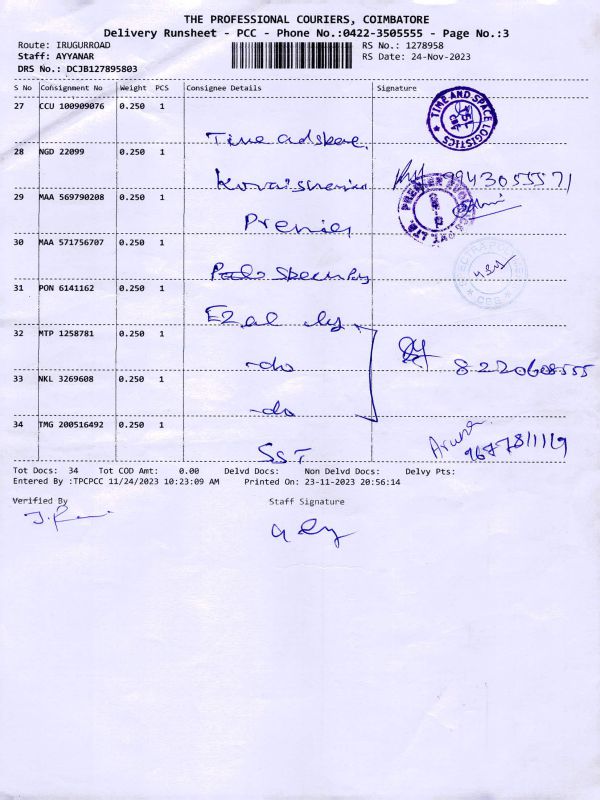 THE PROFESSIONAL COURIERS, COIMBATORE
Delivery Runsheet - PCC - Phone No.:0422-3505555 - Page No.:3
Route: IRUGURROAD RS No.: 1278958
Staff: AYYANAR RS Date: 24-Nov-2023
DRS No.: DCJB127895803
S No Consignment No Weight PCS Consignee Details Signature
27 CCU 100909076 0.250 1
TIME AND SPACE LOGISTICS
28 NGD 22099 0.250 1
9943055571
29 MAA 569790208 0.250 1
Premier
30 MAA 571756707 0.250 1
31 PON 6141162 0.250 1
32 MTP 1258781 0.250 1
-do
8220608555
33 NKL 3269608 0.250 1
-do
34 TMG 200516492 0.250 1
SST
Tot Docs: 34 Tot COD Amt: 0.00 Delvd Docs: Non Delvd Docs: Delvy Pts:
Entered By :TPCPCC 11/24/2023 10:23:09 AM Printed On: 23-11-2023 20:56:14
Verified By Staff Signature